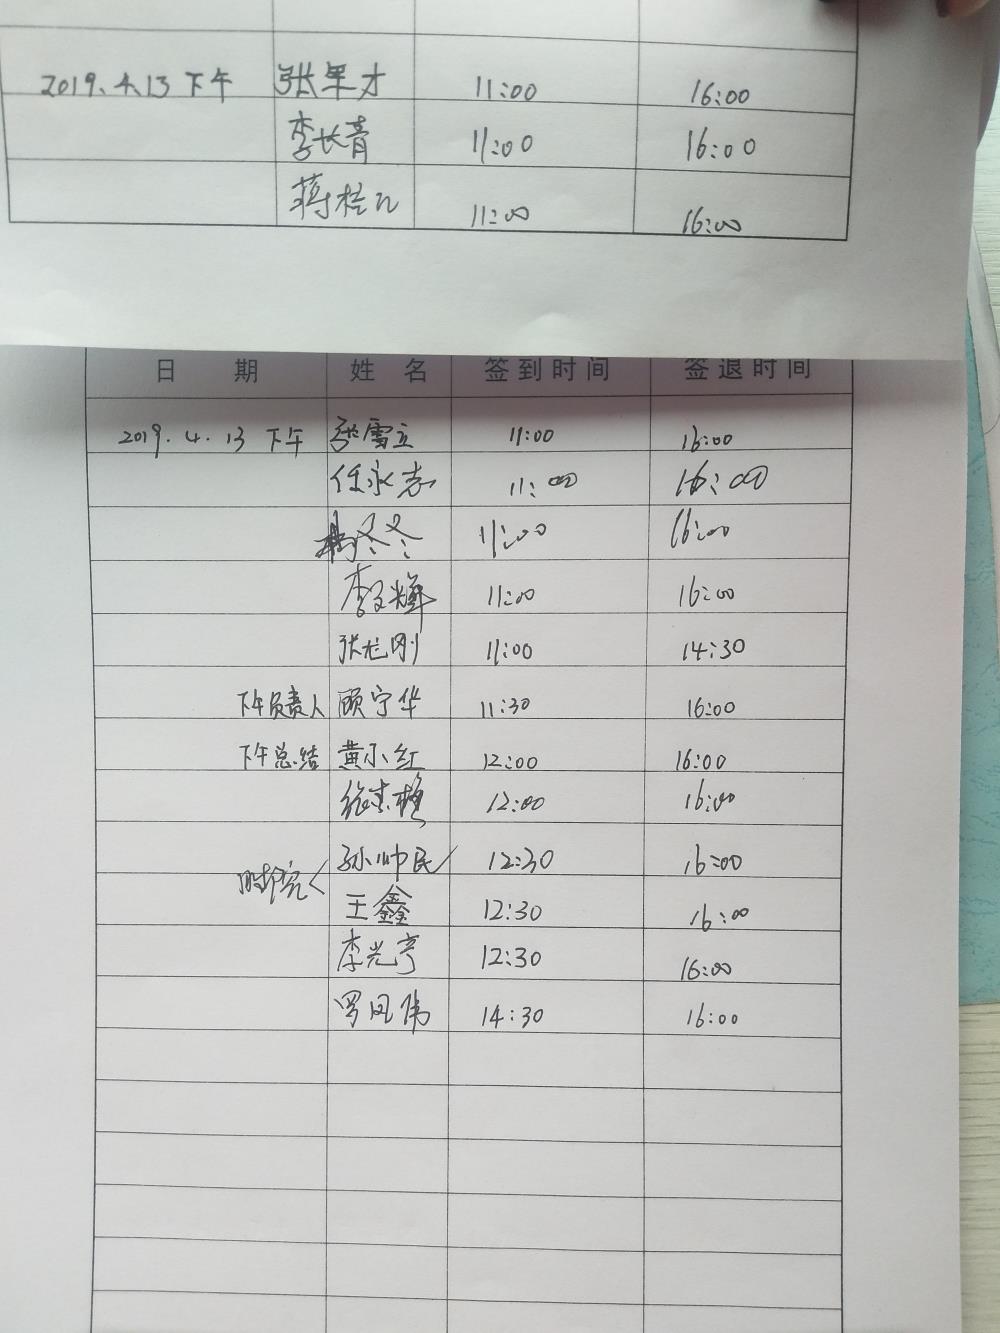 2019.4.13 下午 张军才 11:00 16:00
李长青 11:00 16:00
蒋 11:00 16:00
日 期 姓 名 签到时间 签退时间
2019.4.13 下午 张雪立 11:00 16:00
任永志 11:00 16:00
杨冬冬 11:00 16:00
李文辉 11:00 16:00
张志刚 11:00 14:30
下午负责人 顾宁华 11:30 16:00
下午总结 黄小红 12:00 16:00
12:00 16:00
孙帅民 12:30 16:00
王鑫 12:30 16:00
李光亨 12:30 16:00
罗凤伟 14:30 16:00